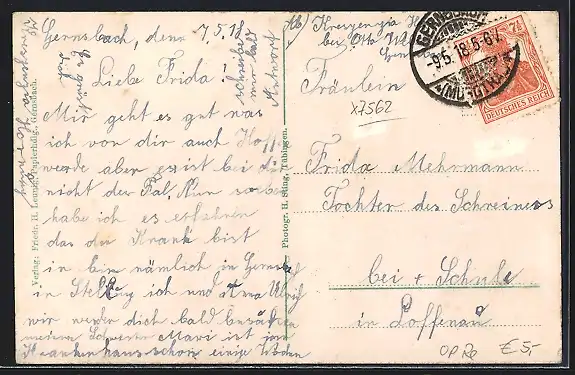 Gernsbach, den 7.5.18
Liebe Frida!
Mir geht es gut was
ich von dir auch Hoff
werde aber es ist bei dir
nicht der Fal. Nun soeben
habe ich es erfahren
das du Krank bist
in bin nämlich in Gernsb
in Stellung ich und
wir werden dich bald besuchen
meine Schwester Mari ist im
Krankenhaus schon einige Wochen
schreibe
mir bald
Antwort
Verlag: Friedr. H. Leucht, Papierhdlg., Gernsbach.
Photogr. H. Sting, Tübingen.
Ab) Kreszenzia
bei Otto
GERNSBACH
-9.5.18.5-6N.
(MURGTAL)
7½
DEUTSCHES REICH
Fräulein
x7562
Frida Mehrmann
Tochter des Schreiners
bei + Schule
in Loffenau
€ 5,-